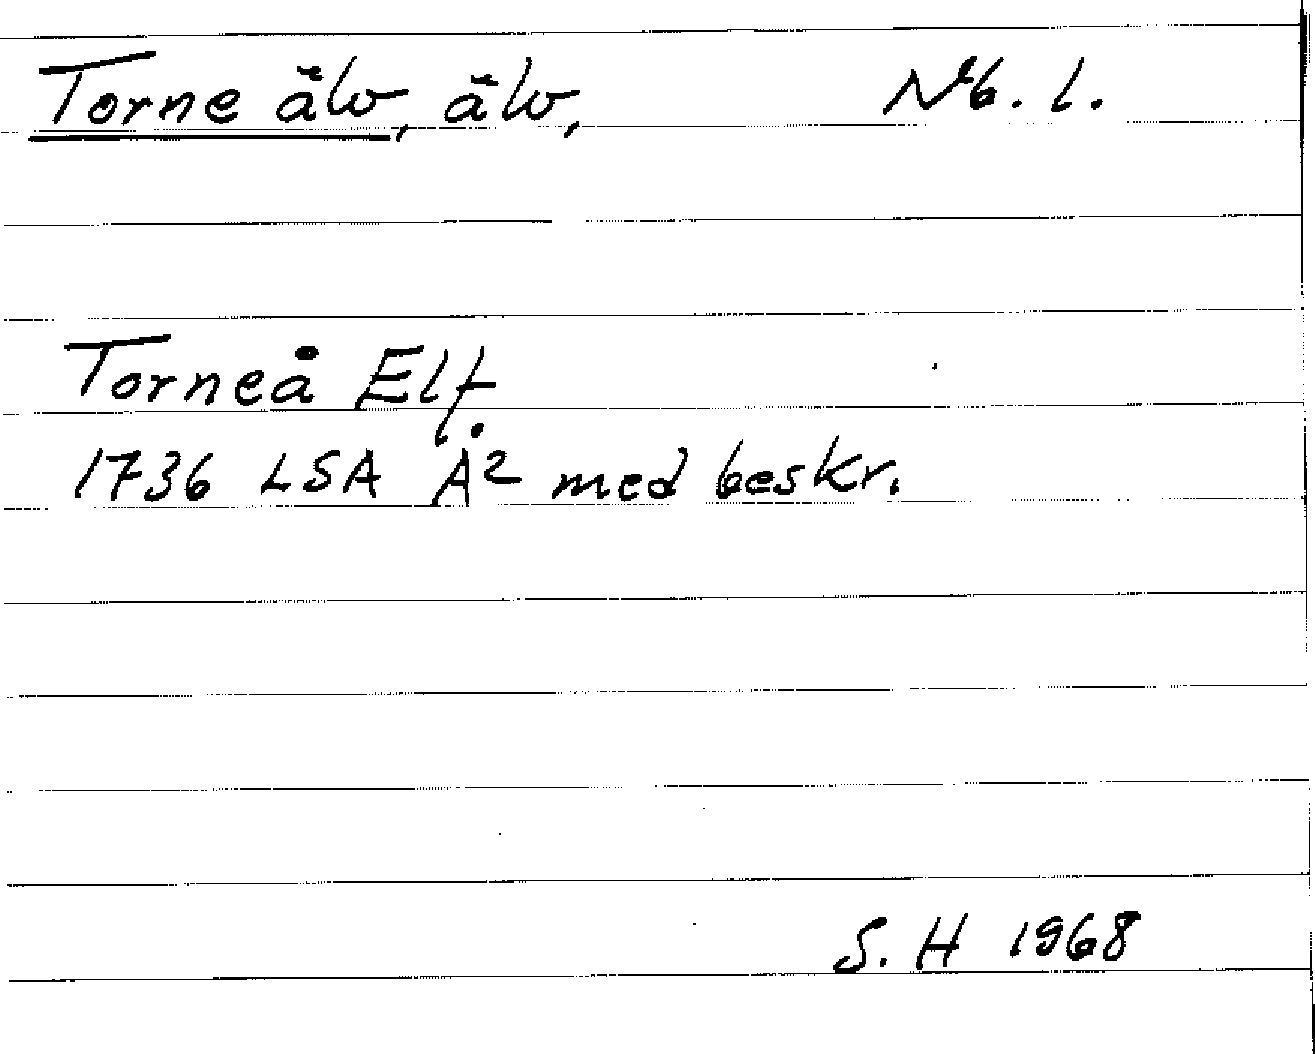 Torne älv, älv, Nb. l.
Torneå Elf
1736 LSA Å2 med beskr.
S. H 1968